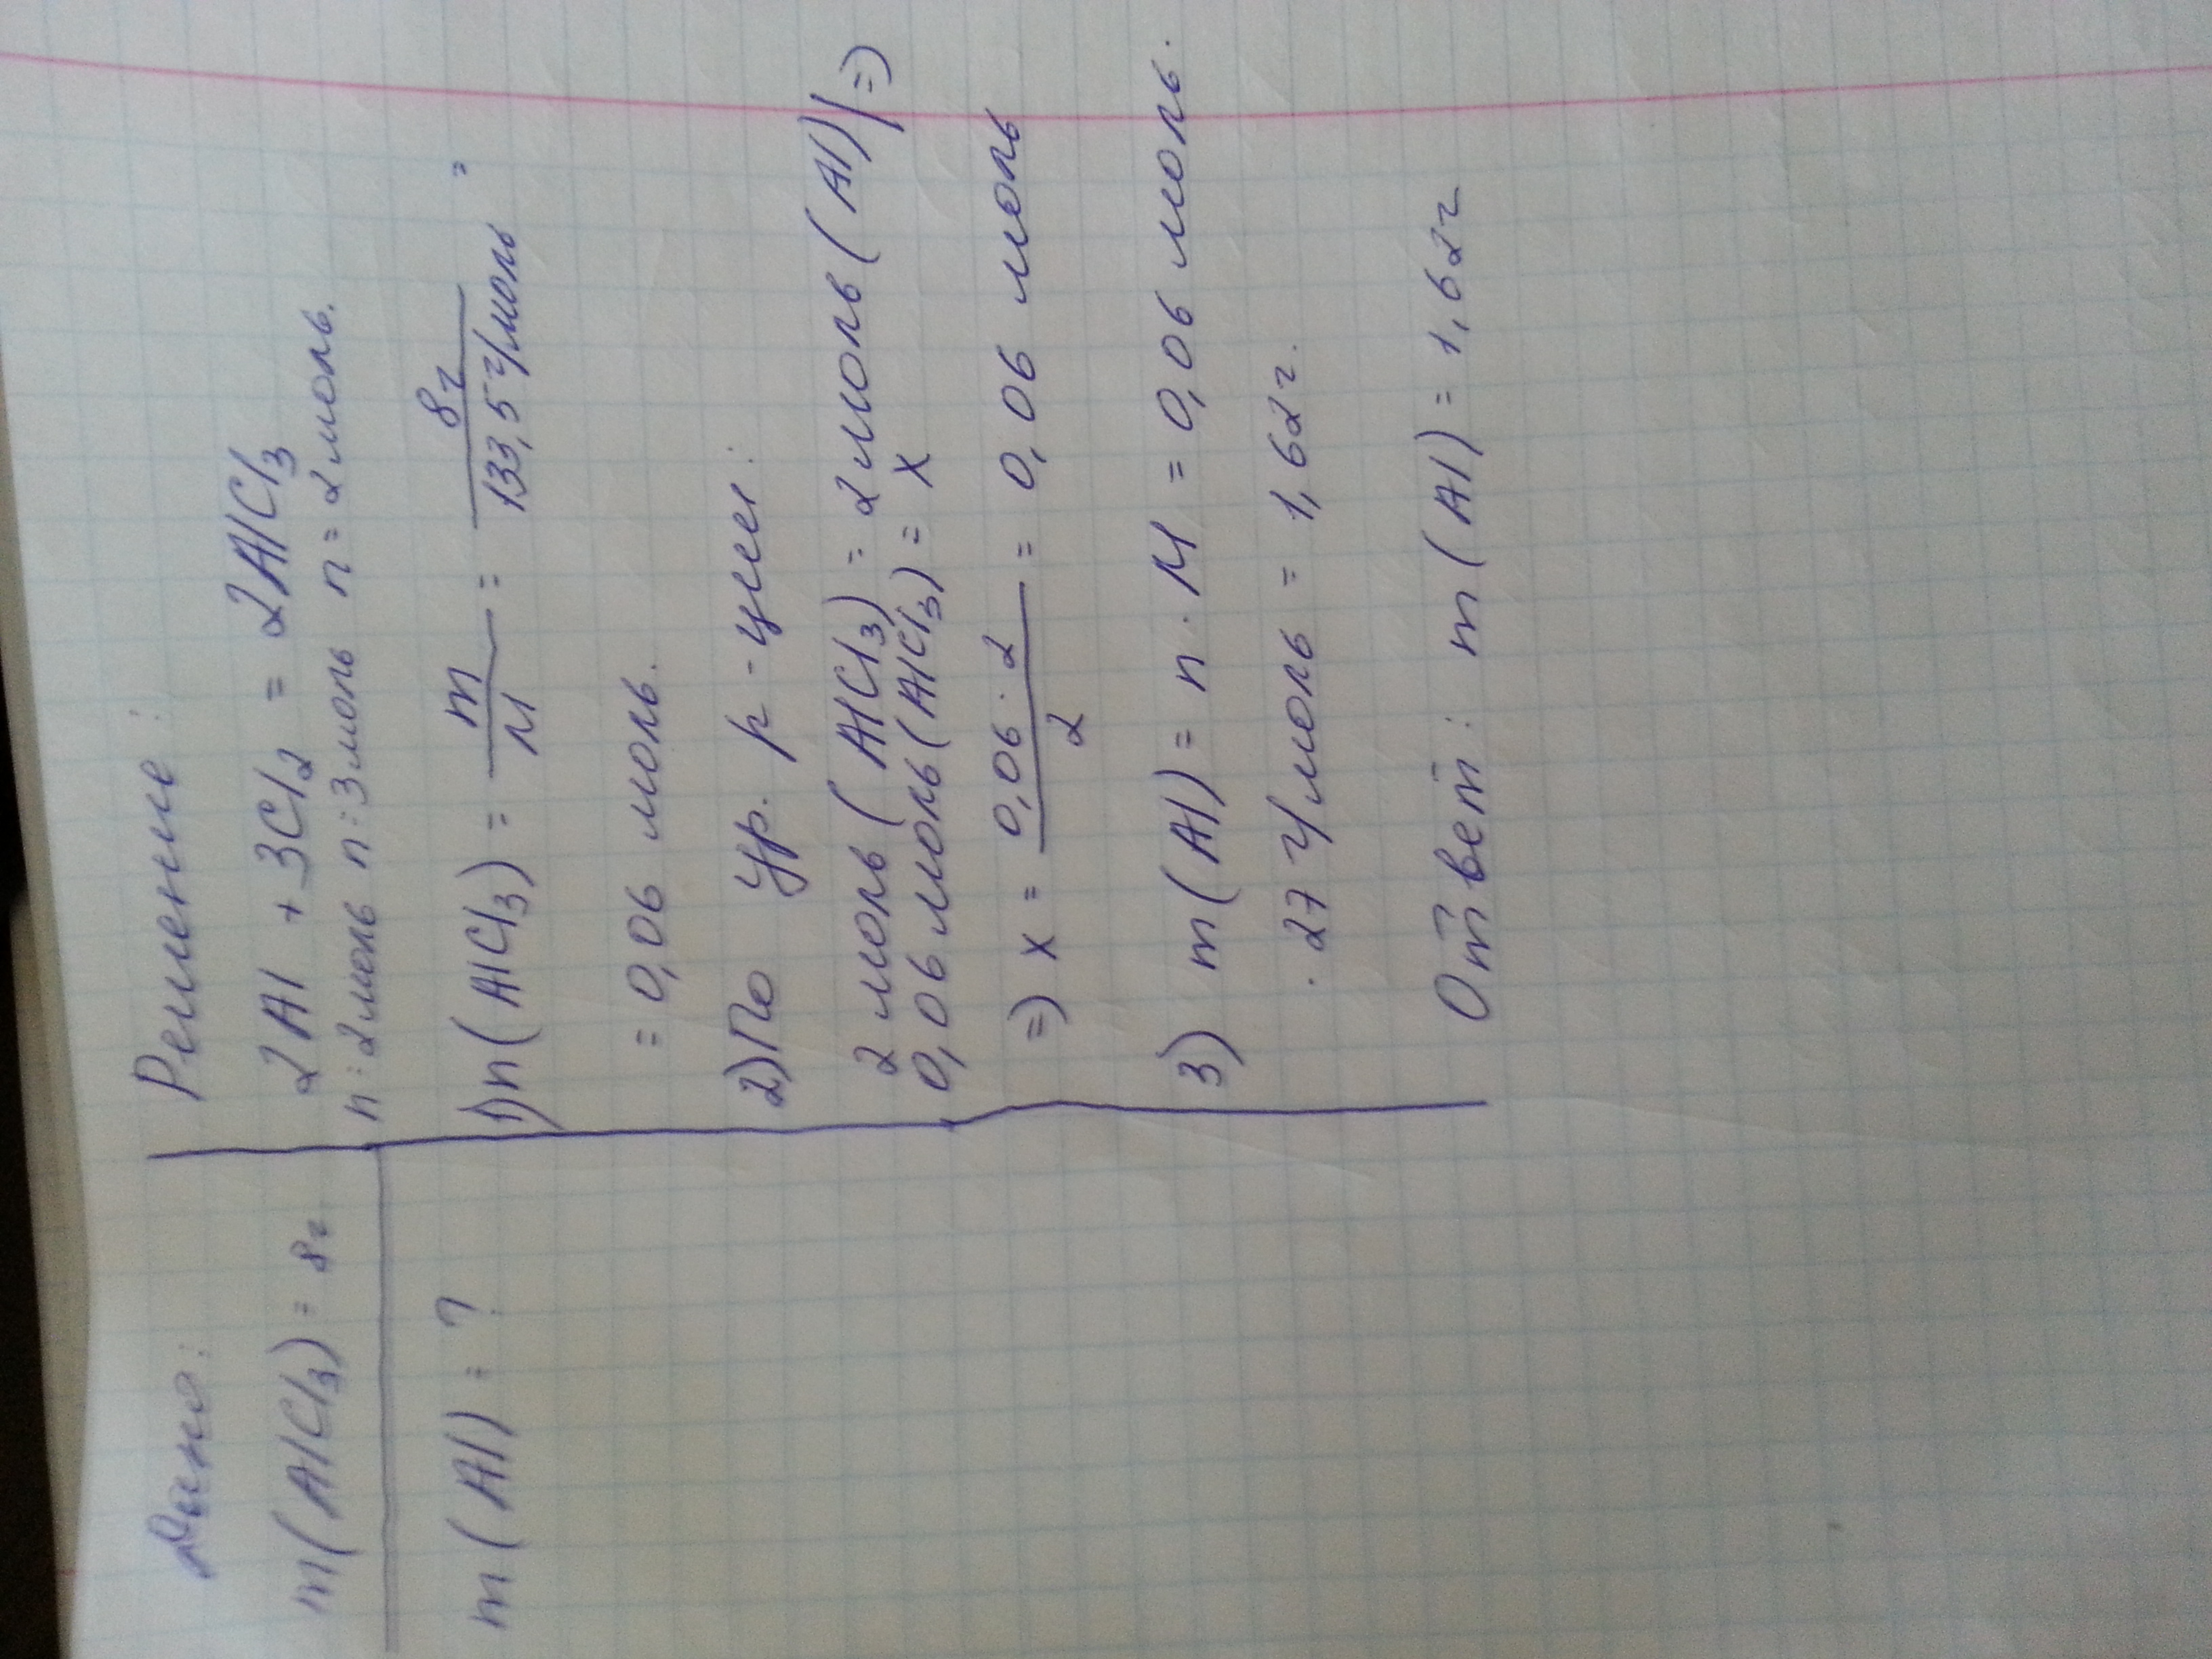 Дано:
m(AlCl3) = 8г
m(Al) = ?
Решение:
2Al + 3Cl2 = 2AlCl3
n=2моль n=3моль n=2моль.
1) n(AlCl3) = m/M = 8г/133,5г/моль =
= 0,06 моль.
2) По ур. р-ции:
2 моль (AlCl3) = 2 моль (Al) | =>
0,06 моль (AlCl3) = x
=> x = 0,06 · 2/2 = 0,06 моль
3) m(Al) = n · M = 0,06 моль ·
· 27 г/моль = 1,62г.
Ответ: m(Al) = 1,62г